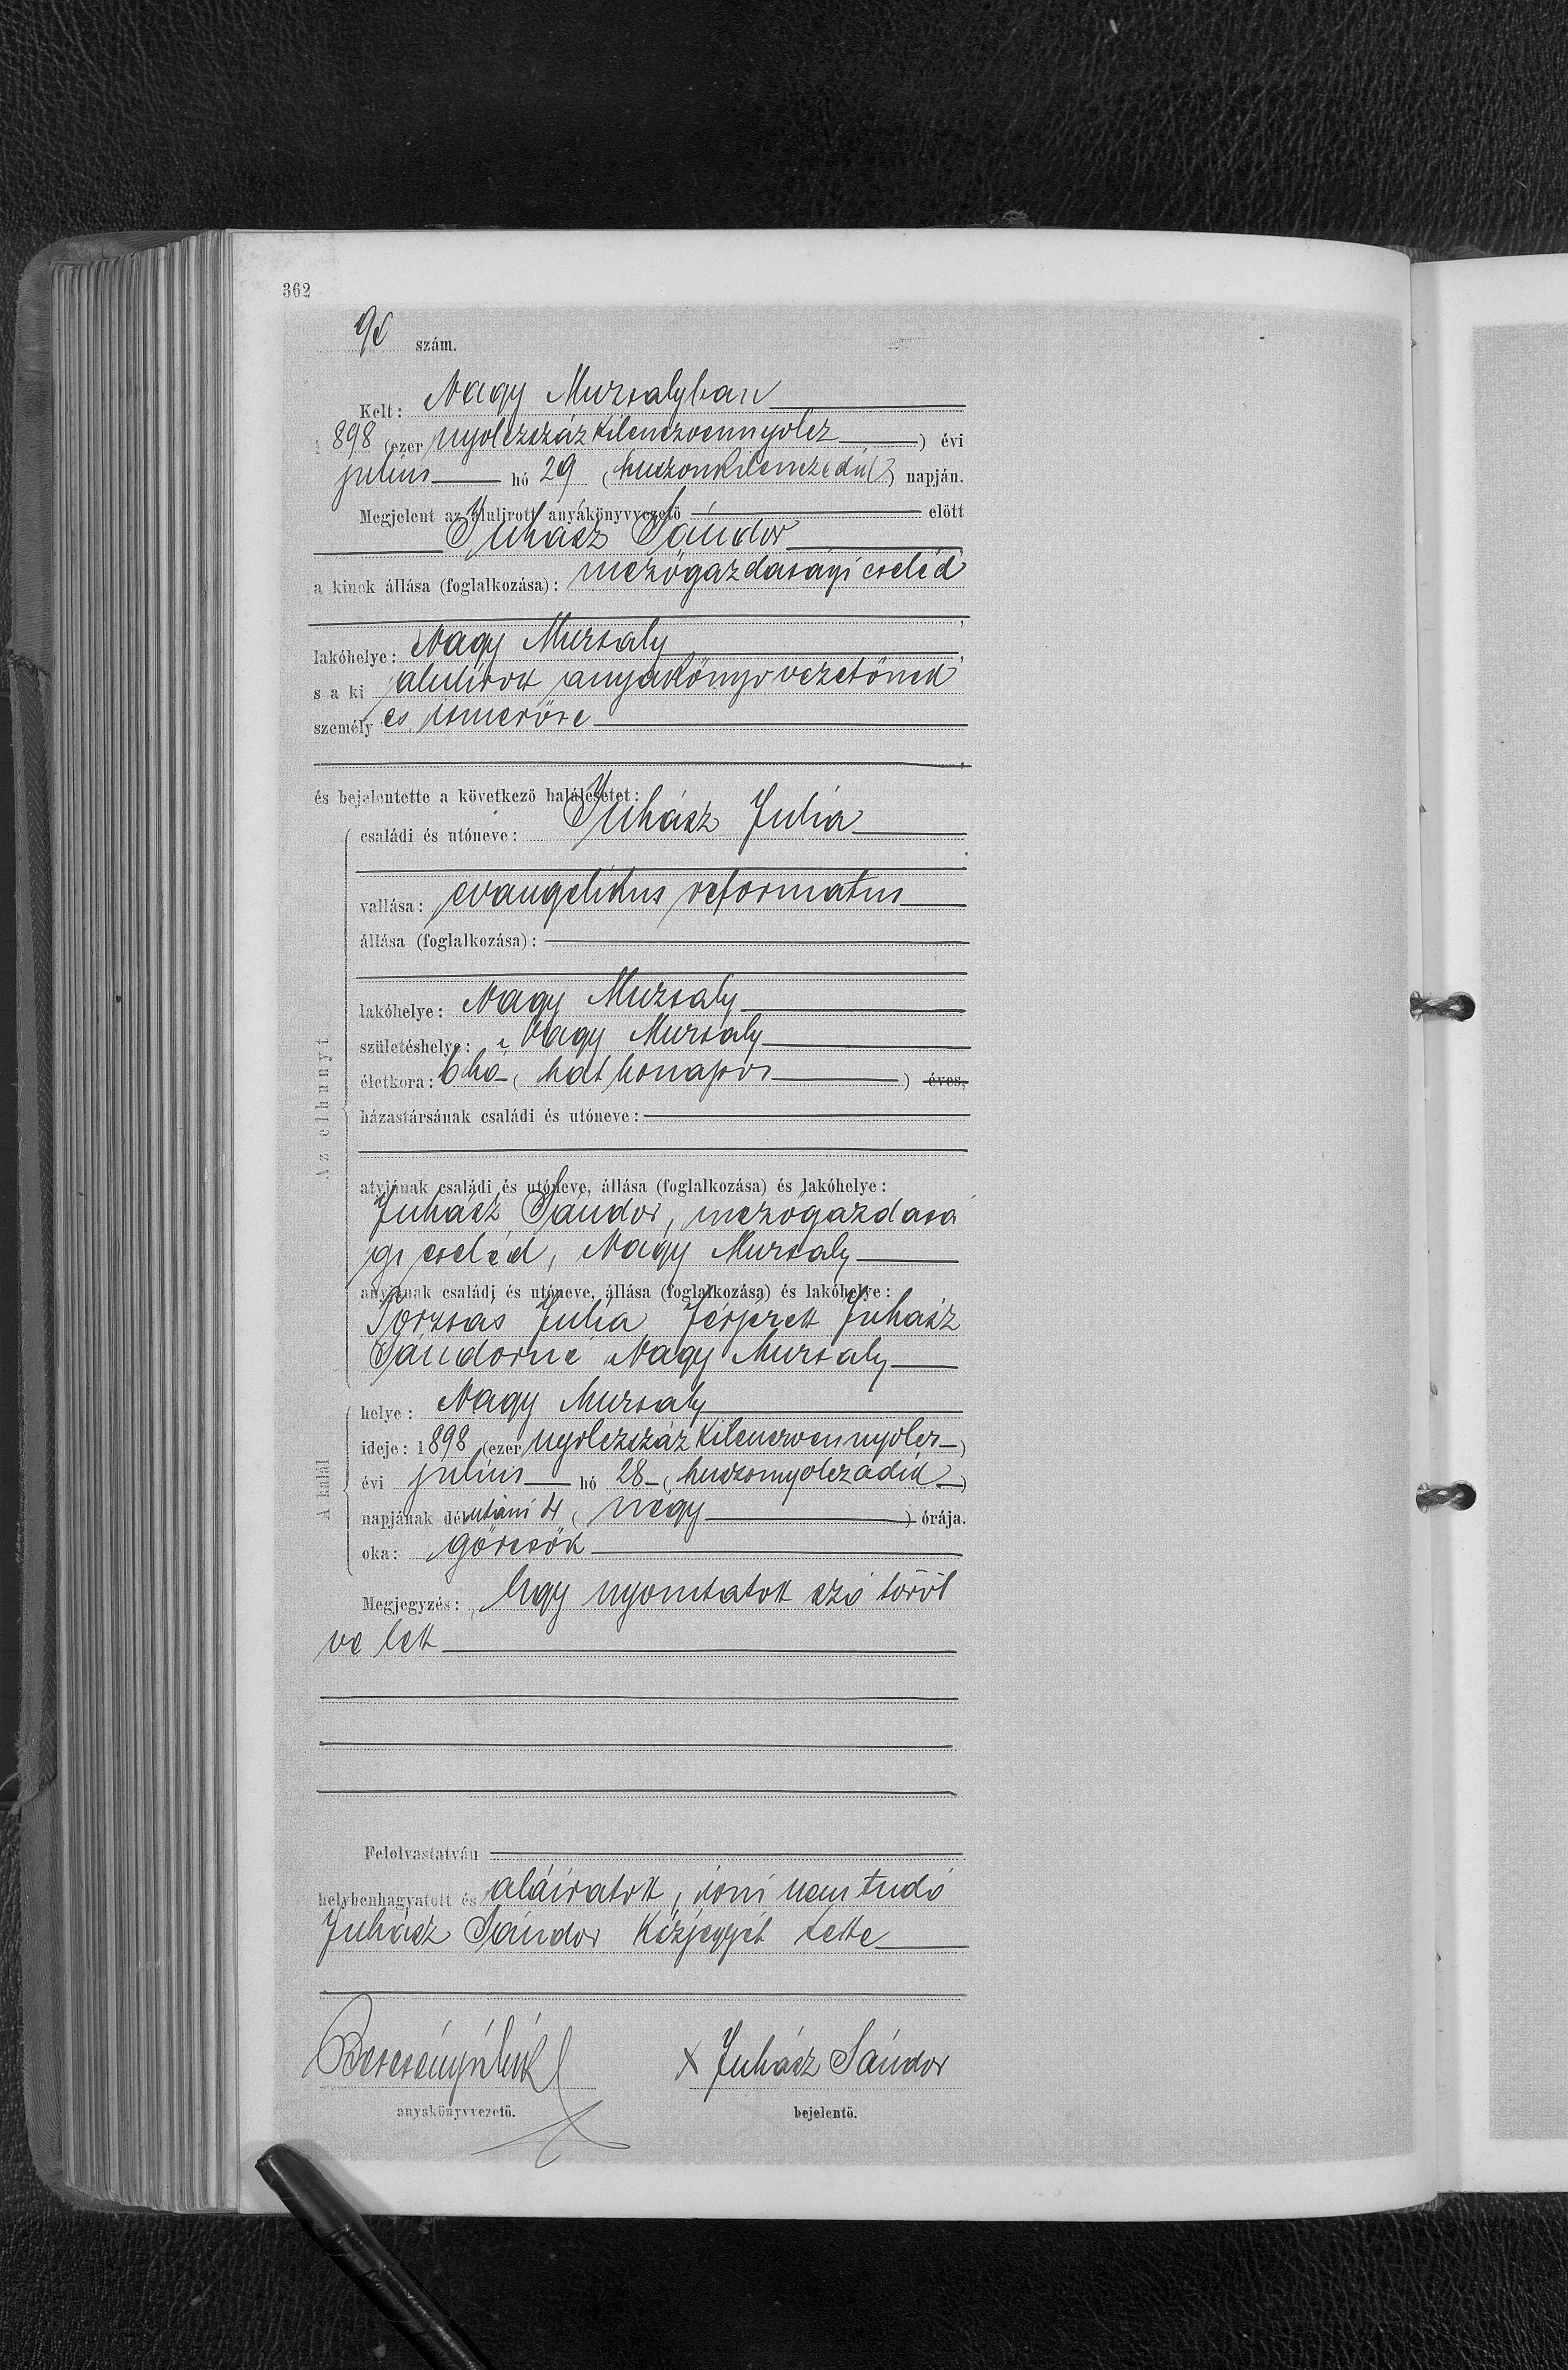 362
szám.
Kelt: Nagy Muzsalyban
1898 (ezer nyolczszáz kilenczvennyolcz) évi
julius hó 29 (huszonkilenczedik) napján.
Megjelent az alulirott anyakönyvvezető előtt
Juhász Sándor
a kinek állása (foglalkozása): mezőgazdasági cseléd
lakóhelye: Nagy Muzsaly
s a ki alulirott anyakönyvvezetőnek
személyes ismerőse
és bejelentette a következő halálesetet:
Az elhunyt
családi és utóneve: Juhász Julia
vallása: evangelikus reformatus
állása (foglalkozása):
lakóhelye: Nagy Muzsaly
születéshelye: Nagy Muzsaly
életkora: 6 hó (hat honapos) éves,
házastársának családi és utóneve:
atyjának családi és utóneve, állása (foglalkozása) és lakóhelye:
Juhász Sándor, mezőgazdasá
gi cseléd, Nagy Muzsaly
anyjának családi és utóneve, állása (foglalkozása) és lakóhelye:
Julia férjezett Juhász
Sándorné Nagy Muzsaly
A halál
helye: Nagy Muzsaly
ideje: 1898 (ezer nyolczszáz kilenczvennyolcz)
évi julius hó 28 (huszonnyolczadik)
napjának délutáni 4 (négy) órája.
oka: görcsök
Megjegyzés: Egy nyomtatott szó töröl
ve lett
Felolvastatván
helybenhagyatott és aláiratott, irni nem tudó
Juhász Sándor kézjegyét tette
anyakönyvvezető.
x Juhász Sándor
bejelentő.